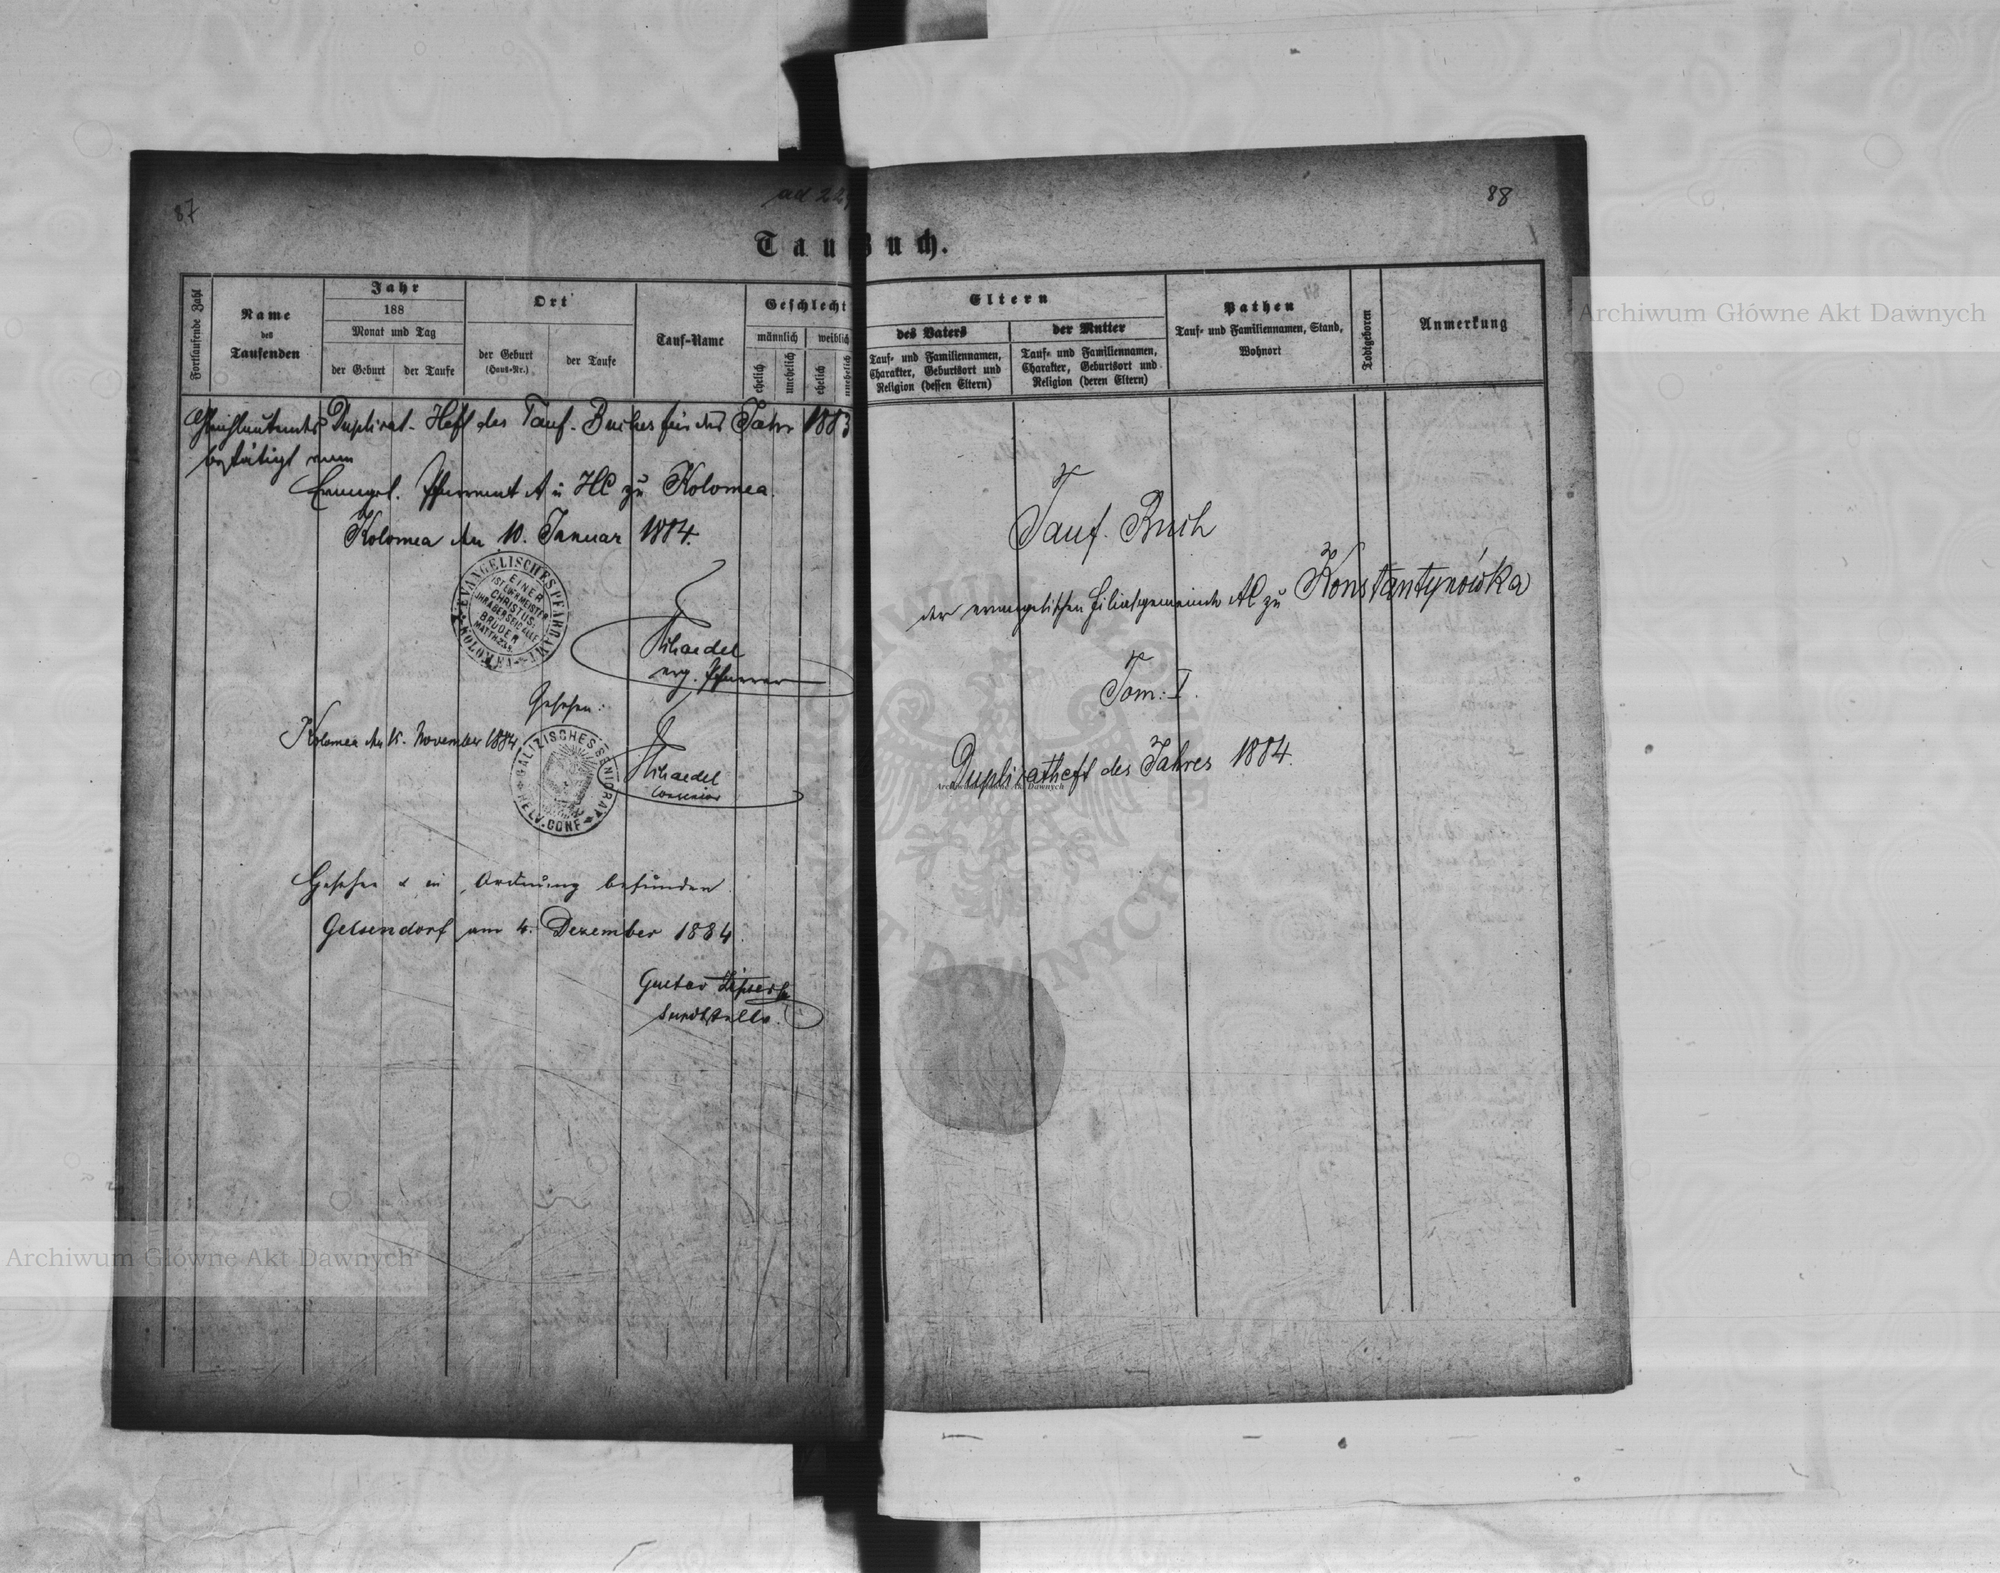 87
ad 22
88
Taufbuch.
Fortlaufende Zahl
Name
des
Taufenden
Jahr
188
Monat und Tag
der Geburt
der Taufe
Ort
der Geburt
(Haus-Nr.)
der Taufe
Tauf-Name
Geschlecht
männlich
weiblich
ehelich
unehelich
ehelich
unehelich
Eltern
des Vaters
Tauf- und Familiennamen,
Charakter, Geburtsort und
Religion (dessen Eltern)
der Mutter
Tauf- und Familiennamen,
Charakter, Geburtsort und
Religion (deren Eltern)
Pathen
Tauf- und Familiennamen, Stand,
Wohnort
Todtgeboren
Anmerkung
Duplicat-Heft des Tauf-Buches für das Jahr 1883
bestätigt
Evangel. Pfarramt A u HC zu Kolomea.
Kolomea den 10. Januar 1884.
EVANGELISCHES PFARRAMT
KOLOMEA
EINER
IST EUER MEISTER
CHRISTUS;
IHR ABER SEID ALLE
BRÜDER
MATTH. 23.8.
evg. Pfarrer
Gesehen:
Kolomea den 15. November 1884
GALIZISCHES SENIORAT
HELV. CONF.
Consenior
Gesehen & in Ordnung befunden.
Gelsendorf am 4. Dezember 1884.
Gustav
Tauf-Buch
der evangelischen Filialgemeinde AC zu Konstantynówka
Tom: I.
Duplicatheft des Jahres 1884.
Archiwum Główne Akt Dawnych
Archiwum Główne Akt Dawnych
Archiwum Główne Akt Dawnych